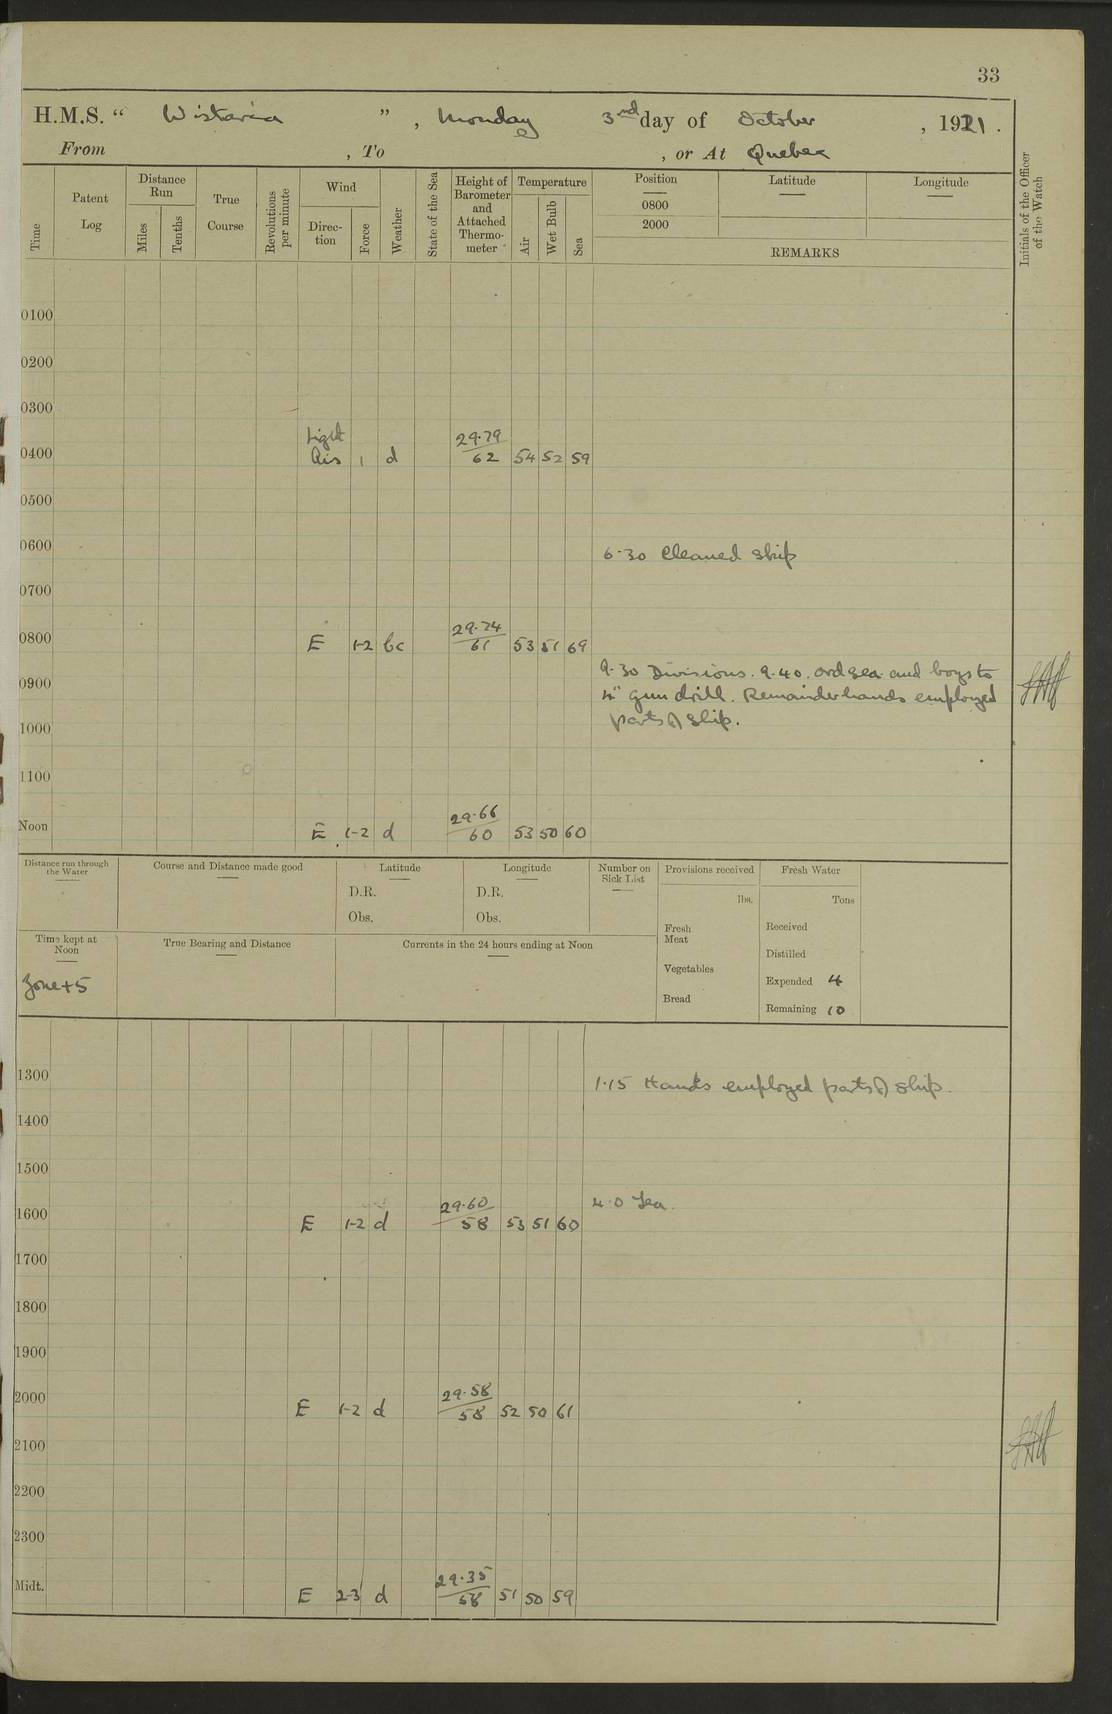 33
H.M.S. “ Wistaria ”, Monday 3rd day of October, 1921.
From , To , or At Quebec
Time
Patent Log
Distance Run
Miles
Tenths
True Course
Revolutions per minute
Wind
Direction
Force
Weather
State of the Sea
Height of Barometer and Attached Thermometer
Temperature
Air
Wet Bulb
Sea
Position
0800
2000
Latitude
Longitude
REMARKS
Initials of the Officer of the Watch
0100
0200
0300
0400 Light Airs 1 d 29.79/62 54 52 59
0500
0600
6.30 Cleaned ship
0700
0800 E 1-2 bc 29.74/61 53 51 69
9.30 Divisions. 9.40. ord sea and boys to
0900
4" gun drill. Remainder hands employed
parts of ship.
1000
1100
Noon E 1-2 d 29.66/60 53 50 60
Distance run through the Water
Course and Distance made good
Latitude
D.R.
Obs.
Longitude
D.R.
Obs.
Number on Sick List
Provisions received
lbs.
Fresh Meat
Vegetables
Bread
Fresh Water
Tons
Received
Distilled
Expended 4
Remaining 10
Time kept at Noon
Zone +5
True Bearing and Distance
Currents in the 24 hours ending at Noon
1300
1.15 Hands employed parts of ship.
1400
1500
4.0 Tea.
1600 E 1-2 d 29.60/58 53 51 60
1700
1800
1900
2000 E 1-2 d 29.58/58 52 50 61
2100
2200
2300
Midt. E 2-3 d 29.35/58 51 50 59